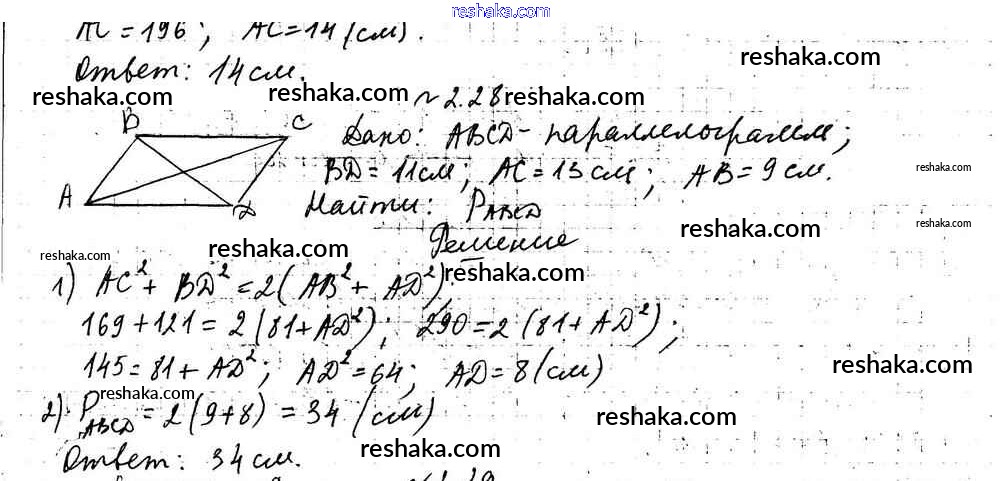 reshaka.com
AC = 196; AC = 14 (см).
reshaka.com
Ответ: 14 см.
reshaka.com reshaka.com ~ 2.28 reshaka.com
B C Дано: ABCD - параллелограмм;
BD = 11 см; AC = 13 см; AB = 9 см. reshaka.com
A D Найти: P_ABCD
reshaka.com reshaka.com
Решение reshaka.com
reshaka.com reshaka.com
1) AC² + BD² = 2(AB² + AD²);
169 + 121 = 2(81 + AD²); 290 = 2(81 + AD²);
145 = 81 + AD²; AD² = 64; AD = 8 (см) reshaka.com
reshaka.com
2) P_ABCD = 2(9+8) = 34 (см) reshaka.com
reshaka.com
Ответ: 34 см.